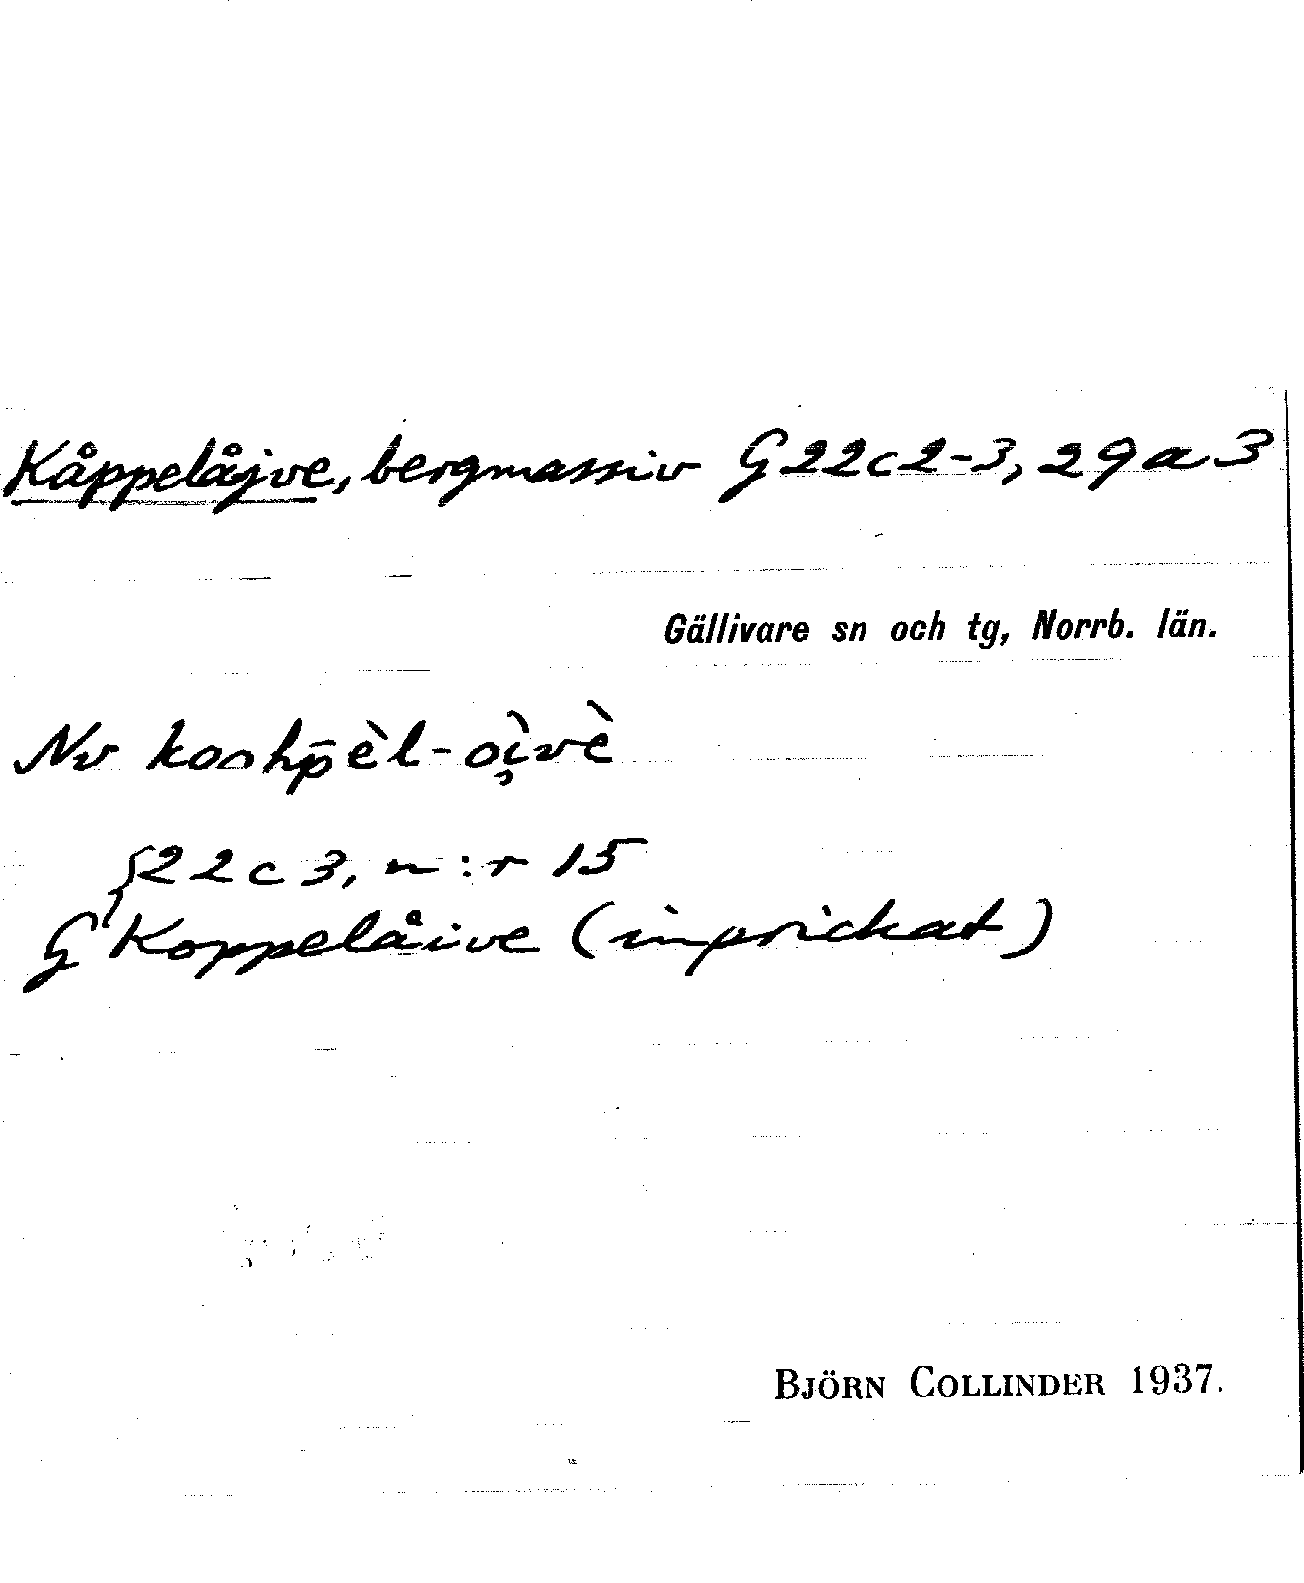 Kåppelåjve, bergmassiv G 22c2-3, 29a3
Gällivare sn och tg, Norrb. län.
Nv koohp̄èl-oi̯vè
22c3, n:r 15
G Koppelåive (inprickat)
BJÖRN COLLINDER 1937.